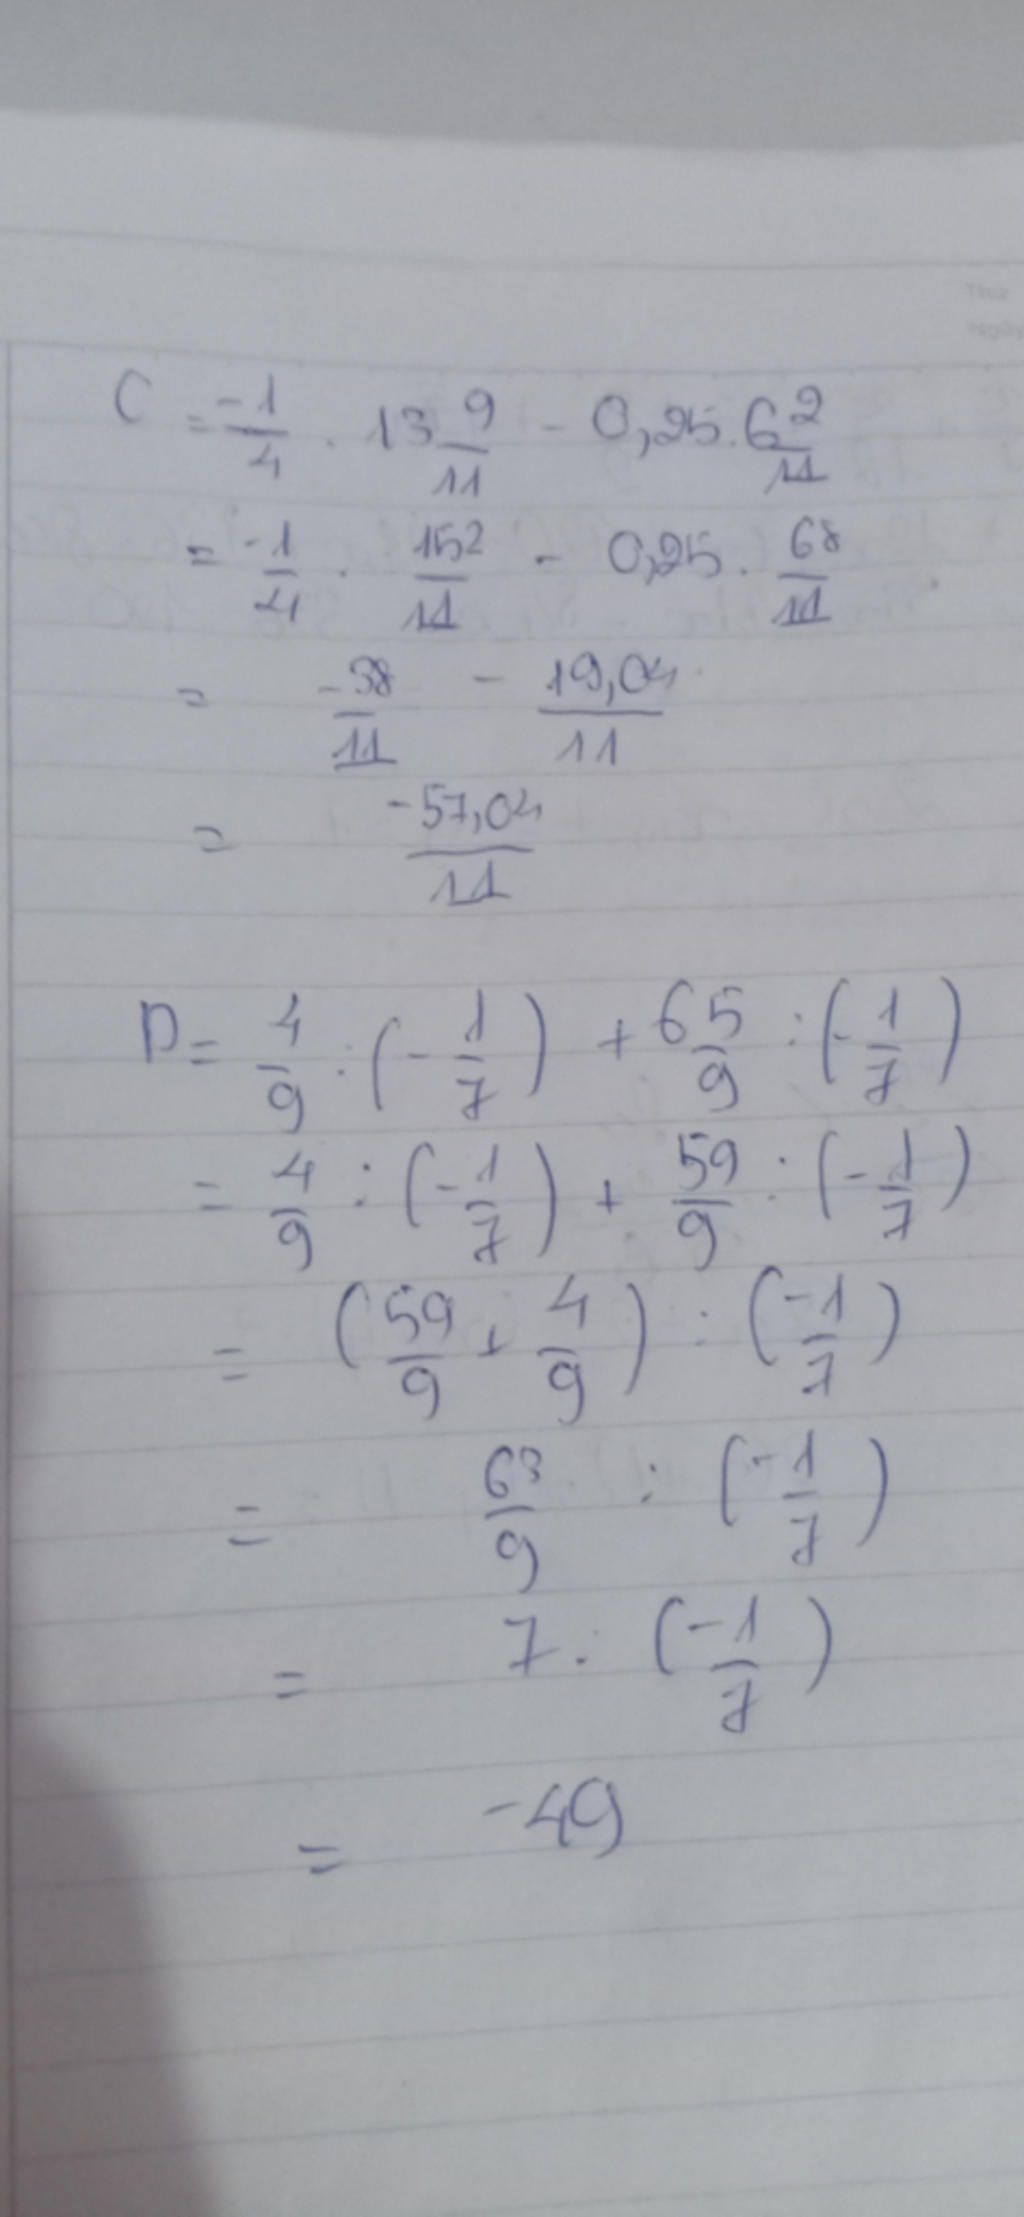 Thứ
Ngày
C = -1/4 . 13 9/11 - 0,25 . 6 2/11
= -1/4 . 152/11 - 0,25 . 68/11
= -38/11 - 19,04/11
= -57,04/11
D = 4/9 : (-1/7) + 6 5/9 : (-1/7)
= 4/9 : (-1/7) + 59/9 : (-1/7)
= (59/9 + 4/9) : (-1/7)
= 63/9 : (-1/7)
= 7 : (-1/7)
= -49